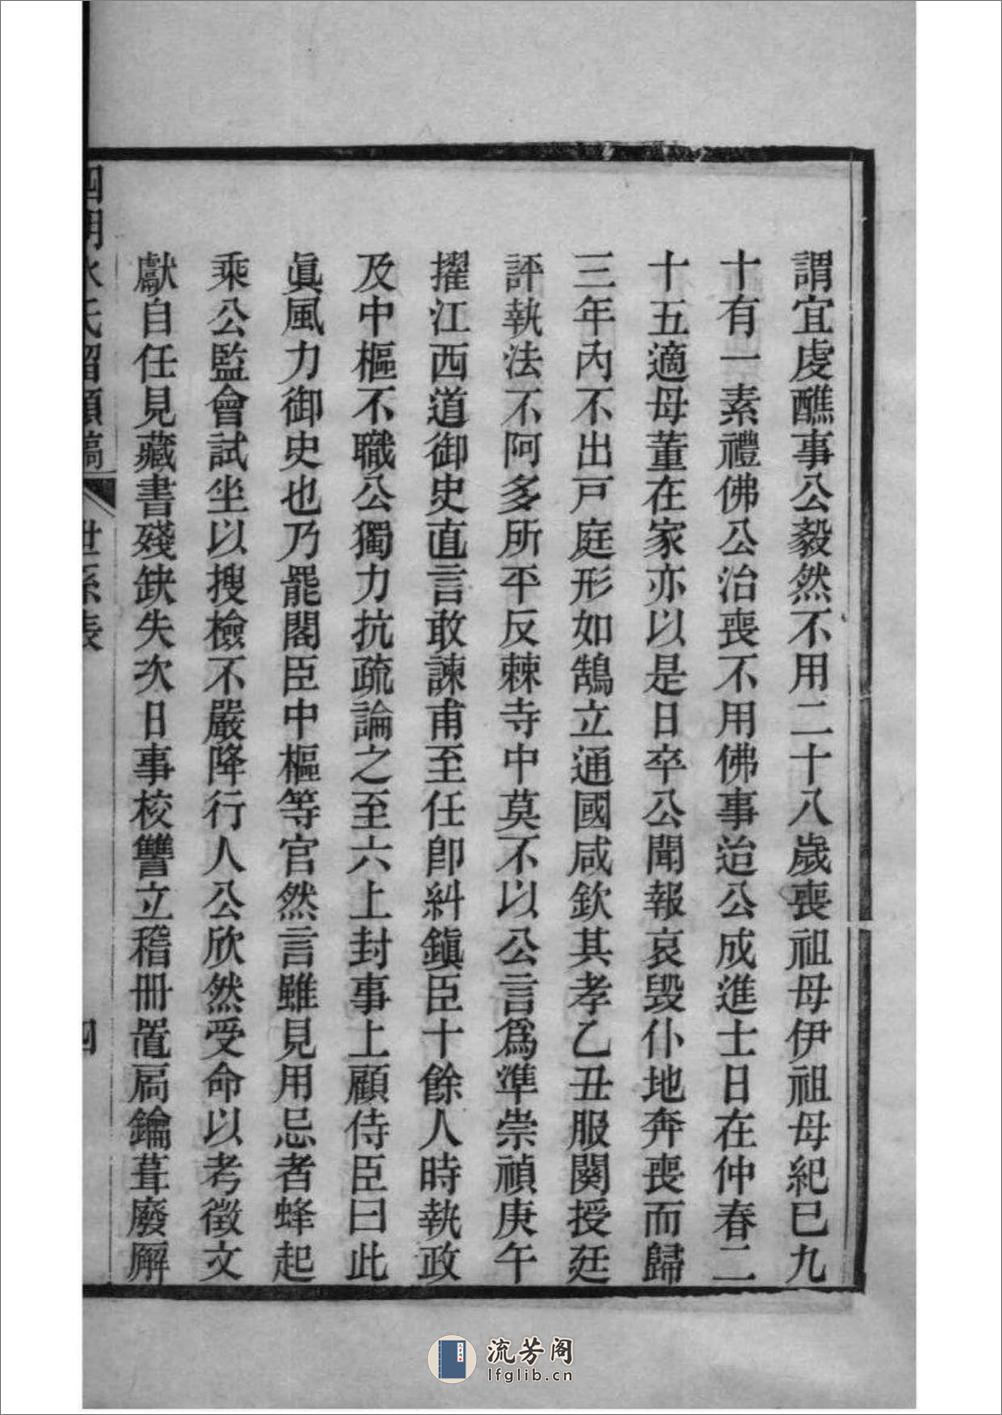 謂宜虔醮事公毅然不用二十八歲喪祖母伊祖母紀已九
十有一素禮佛公治喪不用佛事迨公成進士日在仲春二
十五適母董在家亦以是日卒公聞報哀毀仆地奔喪而歸
三年內不出戸庭形如鵠立通國咸欽其孝乙丑服闋授廷
評執法不阿多所平反棘寺中莫不以公言爲準崇禎庚午
擢江西道御史直言敢諫甫至任卽糾鎭臣十餘人時執政
及中樞不職公獨力抗疏論之至六上封事上顧侍臣曰此
眞風力御史也乃罷閣臣中樞等官然言雖見用忌者蜂起
乘公監會試坐以搜檢不嚴降行人公欣然受命以考徵文
獻自任見藏書殘缺失次日事校讐立稽冊置扃鑰葺廢廨
四明水氏留碩稿 世系表 四
流芳阁
lfglib.cn